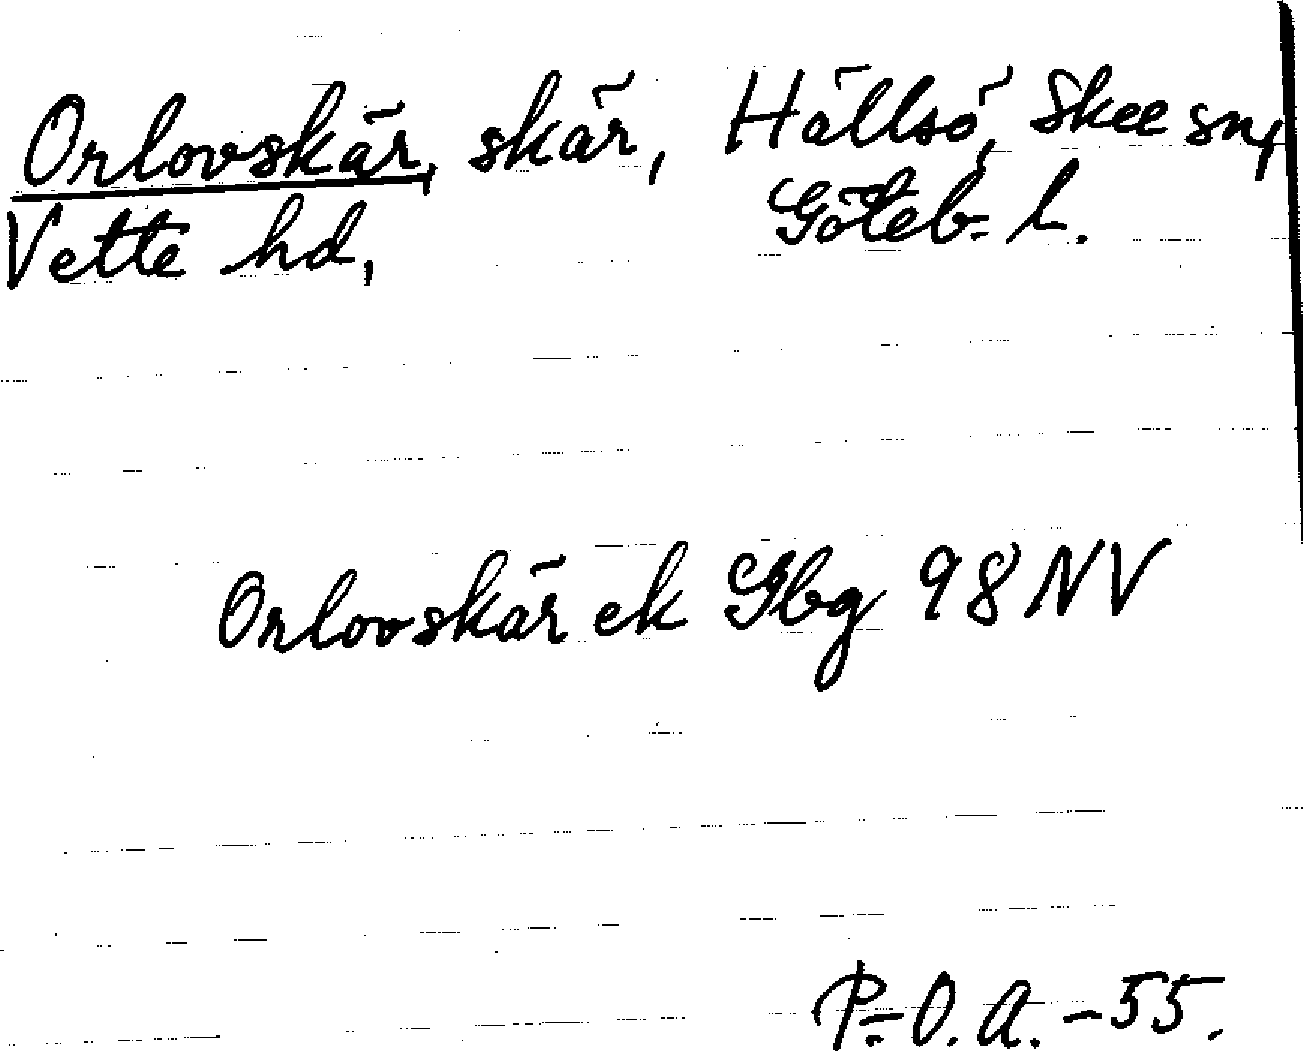 Orlovskär, skär, Hällsö, Skee sn,
Vette hd, Göteb. l.
Orlovskär ek Gbg 98 NV
P.-O. A. -55.